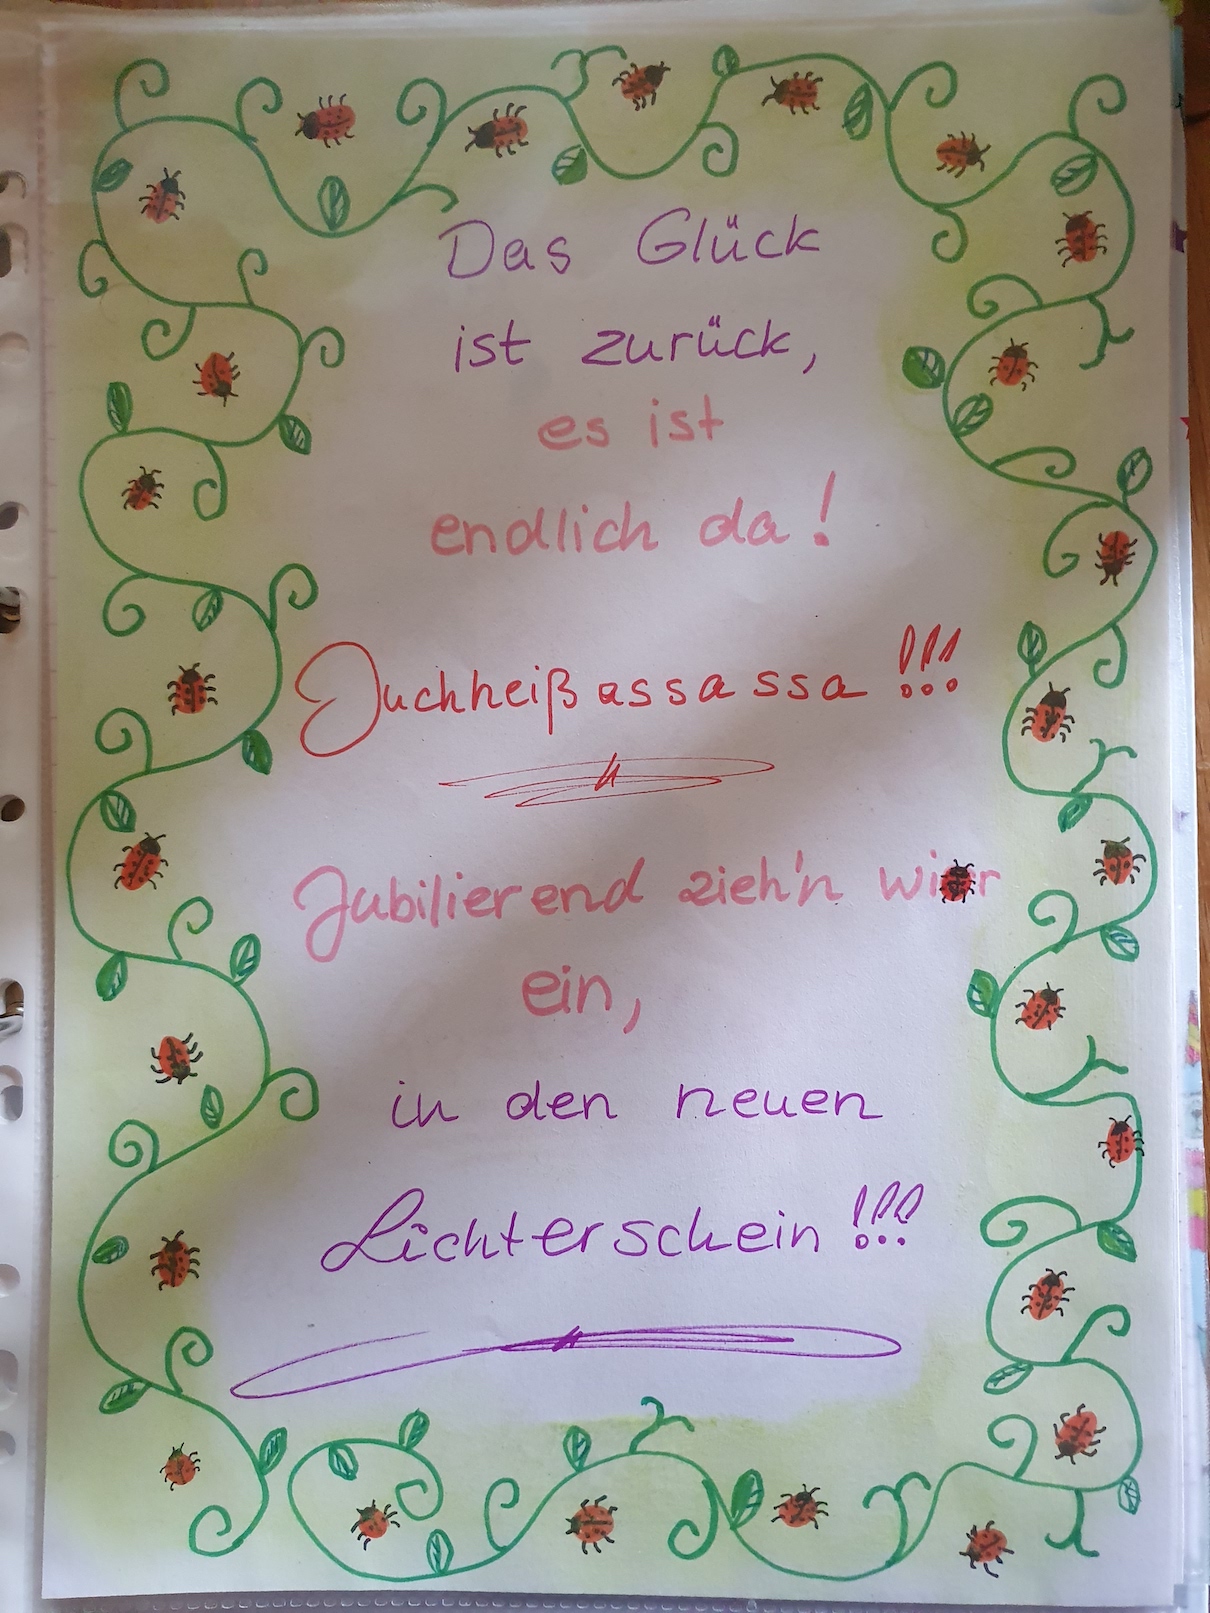 Das Glück
ist zurück,
es ist
endlich da!
Juchheißassassa!!!
Jubilierend zieh'n wir
ein,
in den neuen
Lichterschein!!!